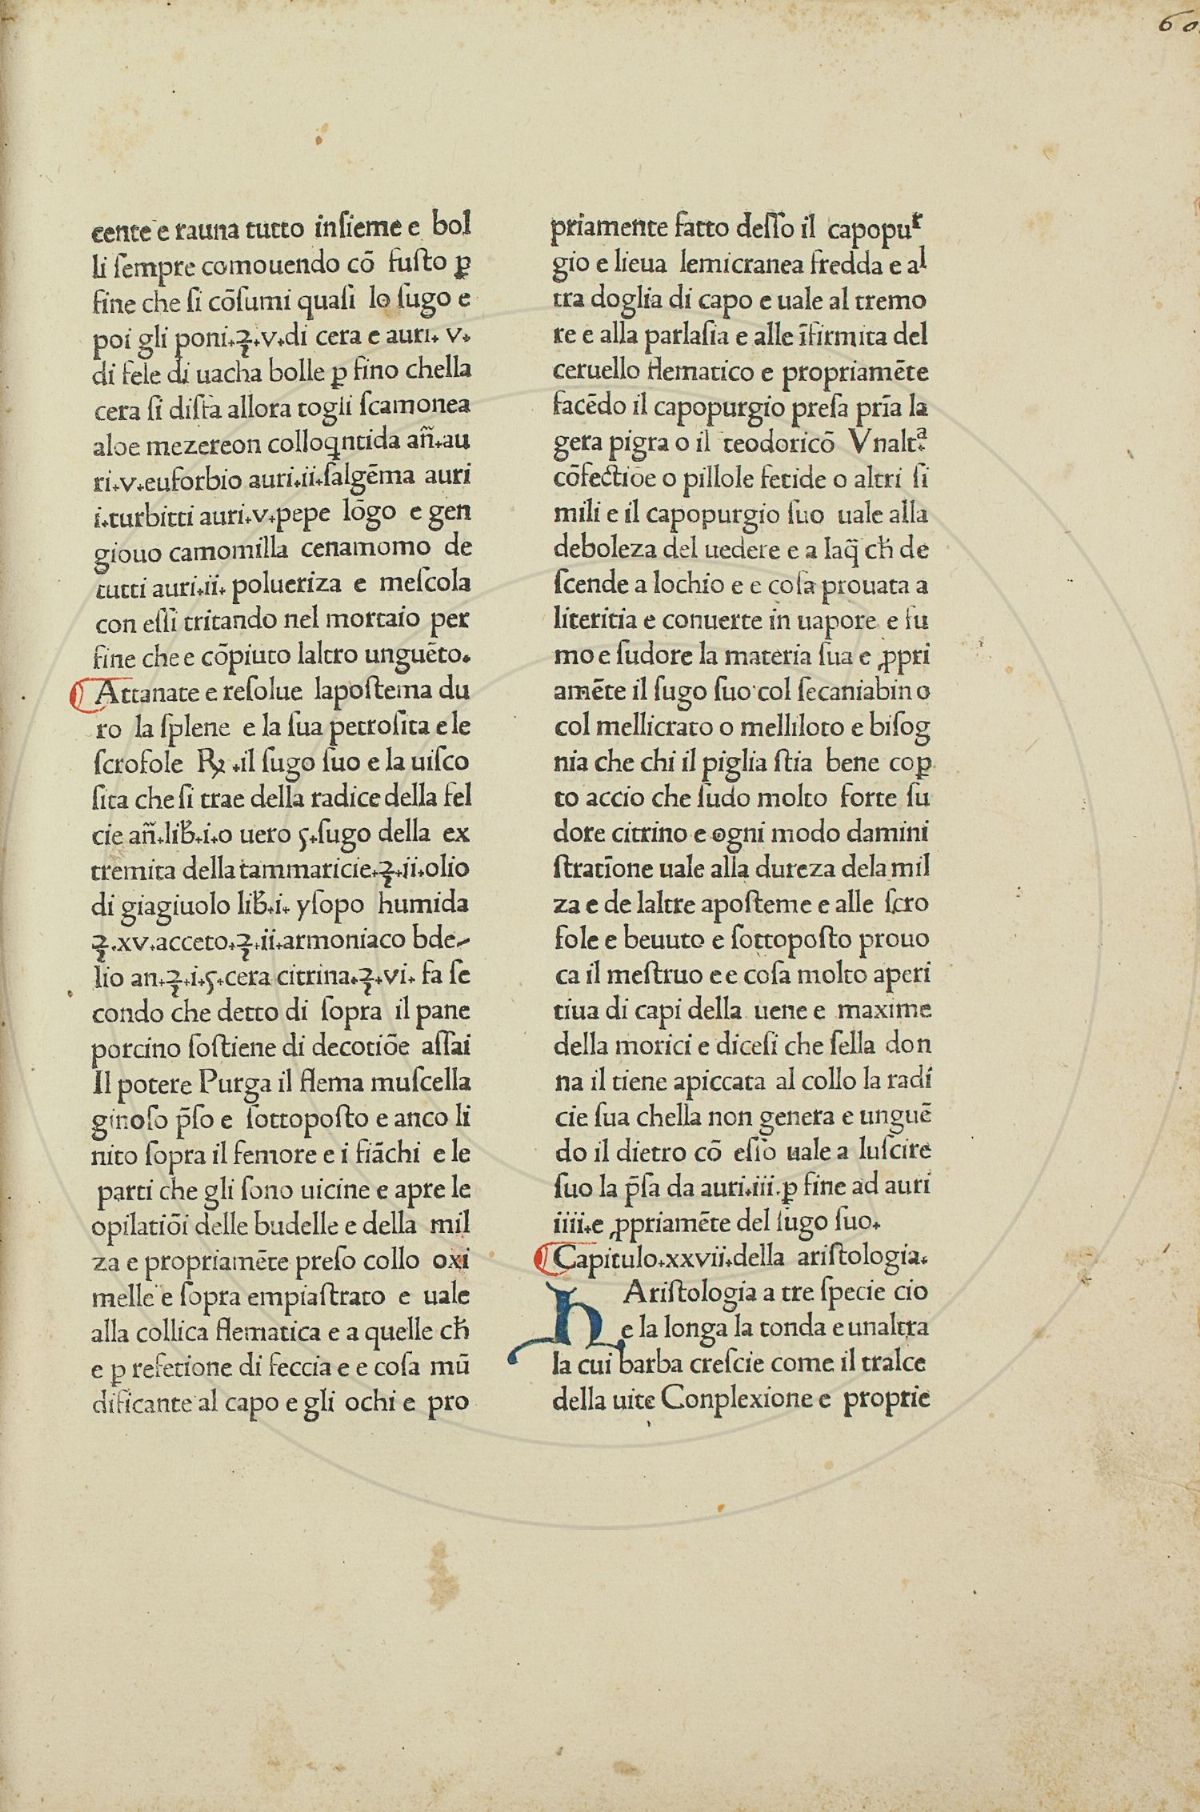 60.
cente e rauna tutto inſieme e bol
li ſempre comouendo cō fuſto ꝑ
fine che ſi cōſumi quaſi lo ſugo e
poi gli poni.℥.v.di cera e auri. v.
di fele di uacha bolle ꝑ fino chella
cera ſi diſfa allora togli ſcamonea
aloe mezereon colloqntida an̄.au
ri.v.euforbio auri.ii.ſalgēma auri
i.turbitti auri.v.pepe lōgo e gen
giouo camomilla cenamomo de
tutti auri.ii. polueriza e meſcola
con eſſi tritando nel mortaio per
fine che e cōpiuto laltro unguēto.
Attanate e reſolue lapoſtema du
ro la ſplene e la ſua petroſita e le
ſcrofole ℞ .il ſugo ſuo e la uiſco
ſita che ſi trae della radice della fel
cie an̄.lib̄.i.o uero ʒ.ſugo della ex
tremita della tammaricie.℥.ii.olio
di giagiuolo lib̄.i. yſopo humida
℥.xv.acceto.℥.ii.armoniaco bde⸗
lio an.℥.i.ʒ.cera citrina.℥.vi. fa ſe
condo che detto di ſopra il pane
porcino ſoſtiene di decotiōe aſſai
Il potere Purga il flema muſcella
ginoſo p̄ſo e ſottopoſto e anco li
nito ſopra il femore e i fiāchi e le
parti che gli ſono uicine e apre le
opilatiōi delle budelle e della mil
za e propriamēte preſo collo oxi
melle e ſopra empiaſtrato e uale
alla collica flematica e a quelle ch̄
e ꝑ refetione di feccia e e coſa mū
dificante al capo e gli ochi e pro
priamente fatto deſſo il capopuʳ
gio e lieua lemicranea fredda e aˡ
tra doglia di capo e uale al tremo
re e alla parlaſia e alle īfirmita del
ceruello flematico e propriamēte
facēdo il capopurgio preſa prīa la
gera pigra o il teodoricō Vnaltᵃ
cōfectiōe o pillole fetide o altri ſi
mili e il capopurgio ſuo uale alla
deboleza del uedere e a laq̄ ch̄ de
ſcende a lochio e e coſa prouata a
literitia e conuerte in uapore e fu
mo e ſudore la materia ſua e ꝓpri
amēte il ſugo ſuo col ſecaniabin o
col mellicrato o melliloto e biſog
nia che chi il piglia ſtia bene coꝑ
to accio che ſudo molto forte ſu
dore citrino e ogni modo damini
ſtratīone uale alla dureza dela mil
za e de laltre apoſteme e alle ſcro
fole e beuuto e ſottopoſto prouo
ca il meſtruo e e coſa molto aperi
tiua di capi della uene e maxime
della morici e diceſi che ſella don
na il tiene apiccata al collo la radi
cie ſua chella non genera e unguē
do il dietro cō eſſo uale a luſcire
ſuo la p̄ſa da auri.iii.ꝑ fine ad auri
iiii.e ꝓpriamēte del ſugo ſuo.
Capitulo.xxvii.della ariſtologia.
h Ariſtologia a tre ſpecie cio
e la longa la tonda e unaltra
la cui barba creſcie come il tralce
della uite Conplexione e proprie